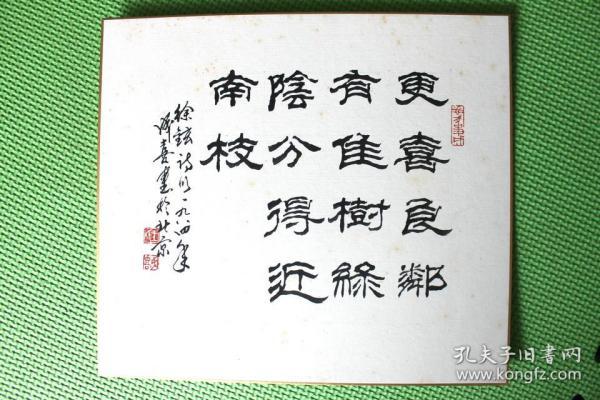 更喜良鄰
有佳樹綠
陰分得近
南枝
徐鉉詩句一九八四年
喜書於北京
孔夫子旧书网
www.kongfz.com